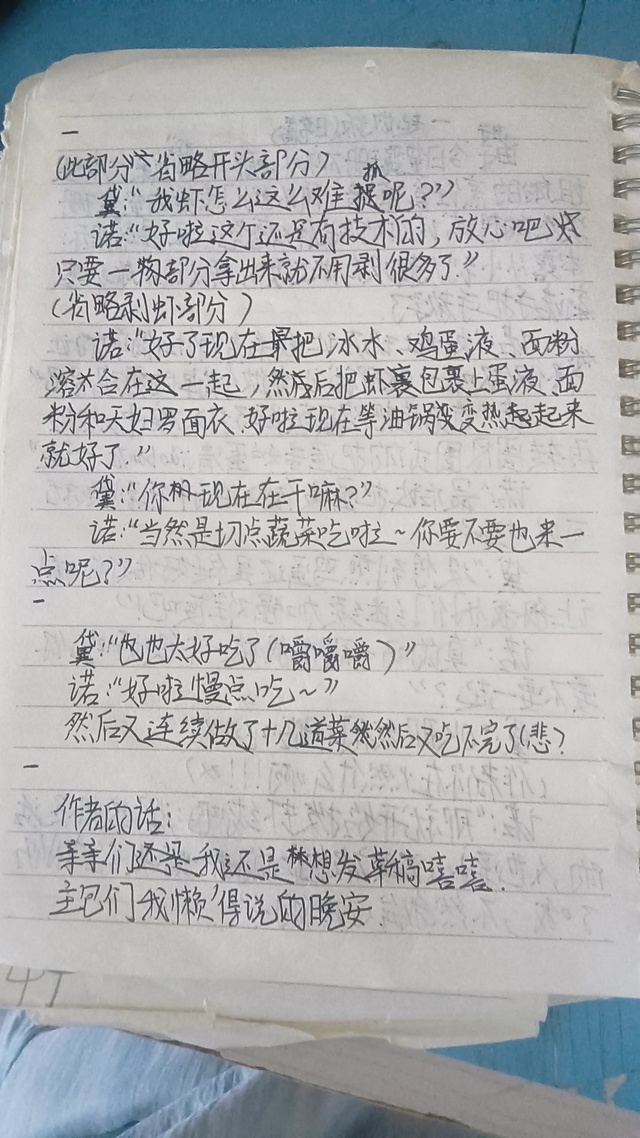 一
(此部分省略开头部分)
黛:“我虾怎么这么难抓呢?”
诺:“好啦这个还是有技术的,放心吧
只要一部分拿出来就不用剥很多了.”
(省略剥虾部分)
诺:“好了现在把冰水、鸡蛋液、面粉
溶合在这一起,然后把虾裹包裹上蛋液、面
粉和天妇罗面衣.好啦现在等油锅变热起起来
就好了.”
黛:“你现在在干嘛?”
诺:“当然是切点蔬菜吃啦~你要不要也来一
点呢?”
-
黛:“也太好吃了(嚼嚼嚼)”
诺:“好啦慢点吃~”
然后又连续做了十几道菜然后又吃不完了(悲?
-
作者的话:
等等们还是我还是想发草稿嘻嘻.
主包们我懒得说的晚安.